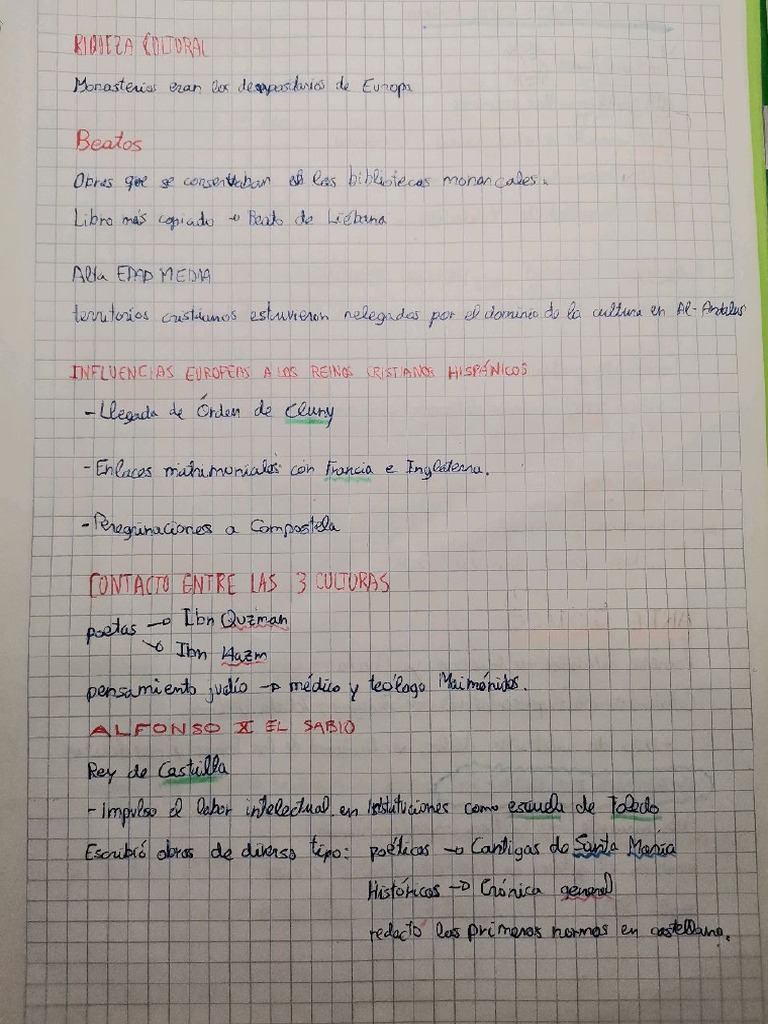 RIQUEZA CULTURAL
Monasterios eran los depositarios de Europa
Beatos
Obras que se conservaban en las bibliotecas monancales.
Libro más copiado → Beato de Liébana
Alta EDAD MEDIA
territorios cristianos estuvieron relegados por el dominio de la cultura en Al-Andalus
INFLUENCIAS EUROPEAS A LOS REINOS CRISTIANOS HISPÁNICOS
- Llegada de Órden de Cluny
- Enlaces matrimoniales con Francia e Inglaterra.
- Peregrinaciones a Compostela
CONTACTO ENTRE LAS 3 CULTURAS
poetas → Ibn Quzman
→ Ibn Hazm
pensamiento judío → médico y teólogo Maimónides.
ALFONSO X EL SABIO
Rey de Castilla
- Impulso el labor intelectual en Instituciones como escuela de Toledo
Escribió obras de diverso tipo: poéticas → Cantigas de Santa María
Históricos → Crónica general
redacto las primeras normas en castellano.